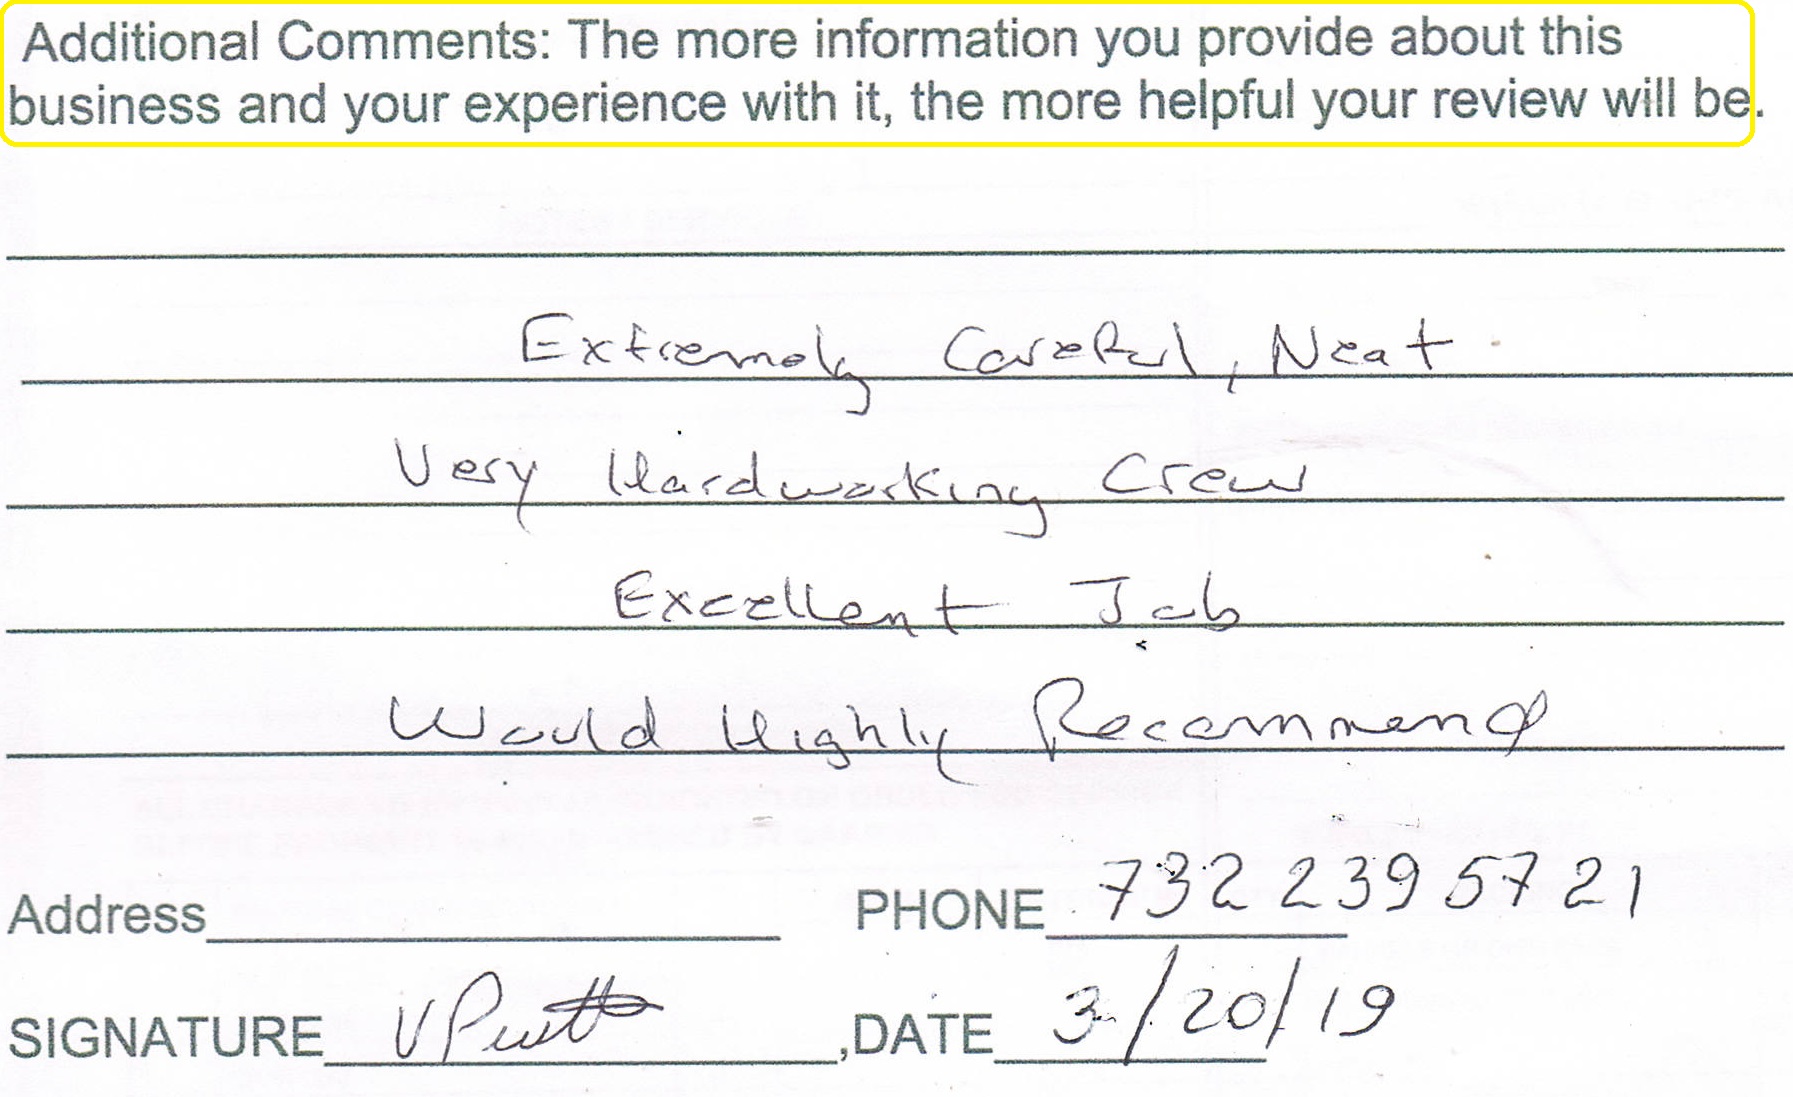 Additional Comments: The more information you provide about this
business and your experience with it, the more helpful your review will be.
Extremely Careful, Neat
Very Hardworking Crew
Excellent Job
Would Highly Recommend
Address PHONE 732 239 5721
SIGNATURE ,DATE 3/20/19